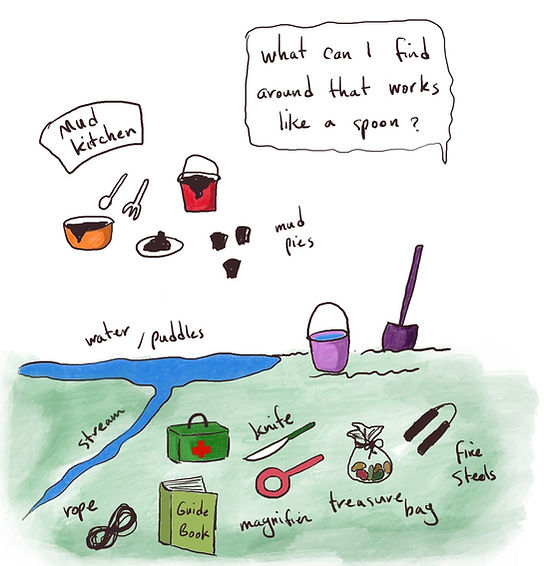 what can I find
around that works
like a spoon?
Mud
kitchen
mud
pies
water/puddles
stream
knife
fire
steels
rope
Guide
Book
magnifier
treasure
bag